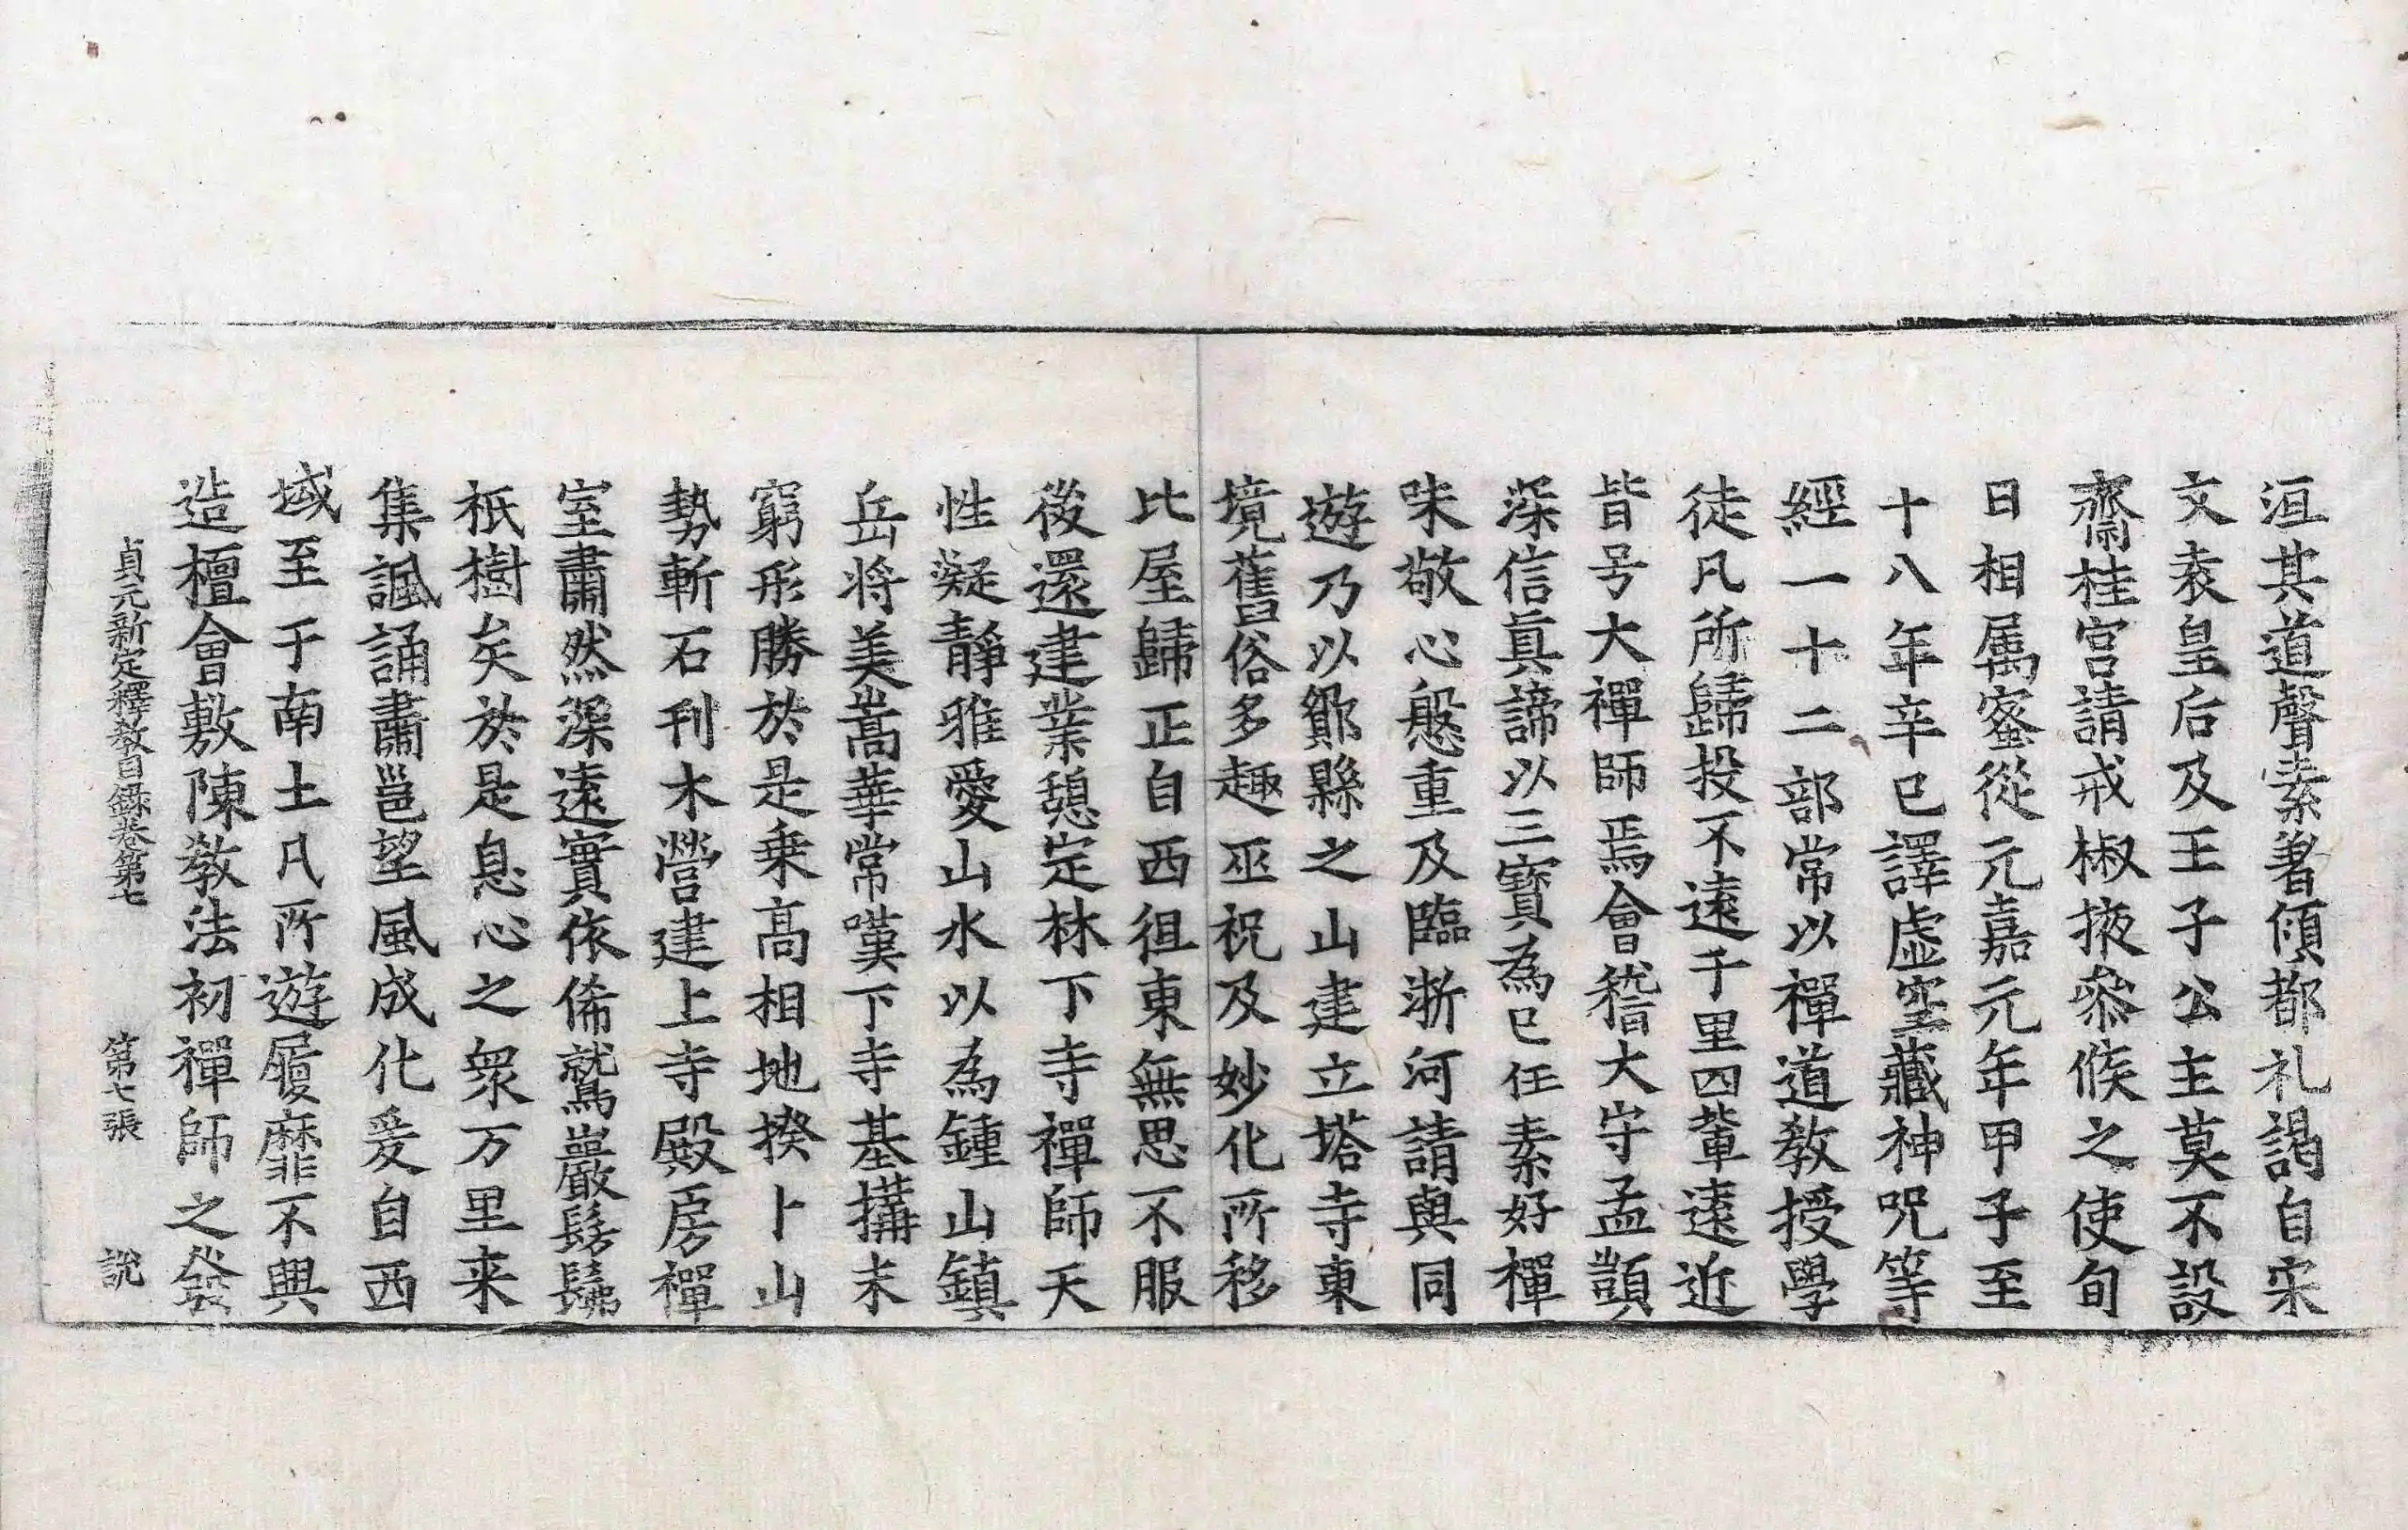 洹其道聲素著傾都礼謁自宋
文袁皇后及王子公主莫不設
齋桂宮請戒椒掖叅候之使旬
日相属蜜從元嘉元年甲子至
十八年辛巳譯虛空藏神呪等
經一十二部常以禪道教授學
徒凡所歸投不遠千里四輩遠近
皆号大禪師焉會稽大守孟顗
深信眞諦以三寶為已任素好禪
味敬心慇重及臨浙河請與同
遊乃以鄮縣之山建立塔寺東
境舊俗多趣巫祝及妙化所移
比屋歸正自西徂東無思不服
後還建業憩定林下寺禪師天
性凝靜雅愛山水以為鍾山鎮
岳将美嵩華常嘆下寺基搆未
窮形勝於是乗高相地揆卜山
勢斬石刊木營建上寺殿房禪
室肅然深遠實依俙鷲巖髣髴
祇樹矣於是息心之衆万里来
集諷誦肅邕望風成化爰自西
域至于南土凡所遊履靡不興
造檀會敷陳教法初禪師之發
貞元新定釋教目録卷第七 第七張 說